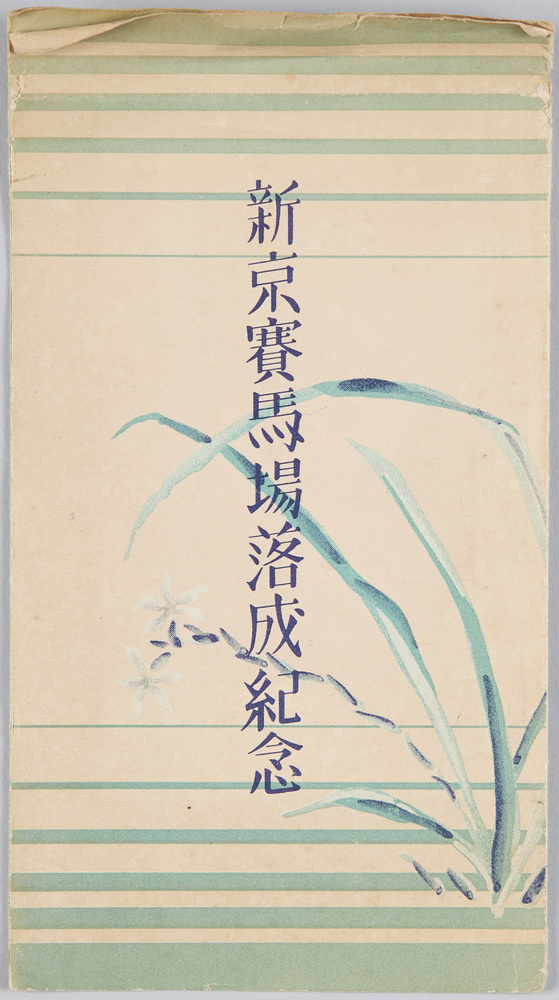 新京賽馬場落成紀念